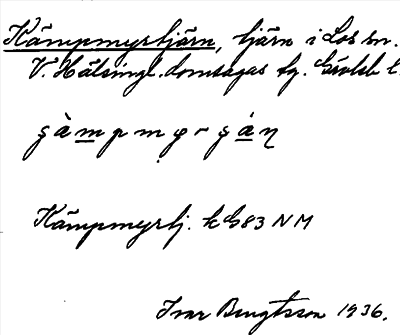 Kämpmyrtjärn, tjärn i Los sn.
V. Hälsingl. domsagas tg. Gävleb. l.
Kämpmyrtj. k G83 NM
Ivar Bengtsson 1936.